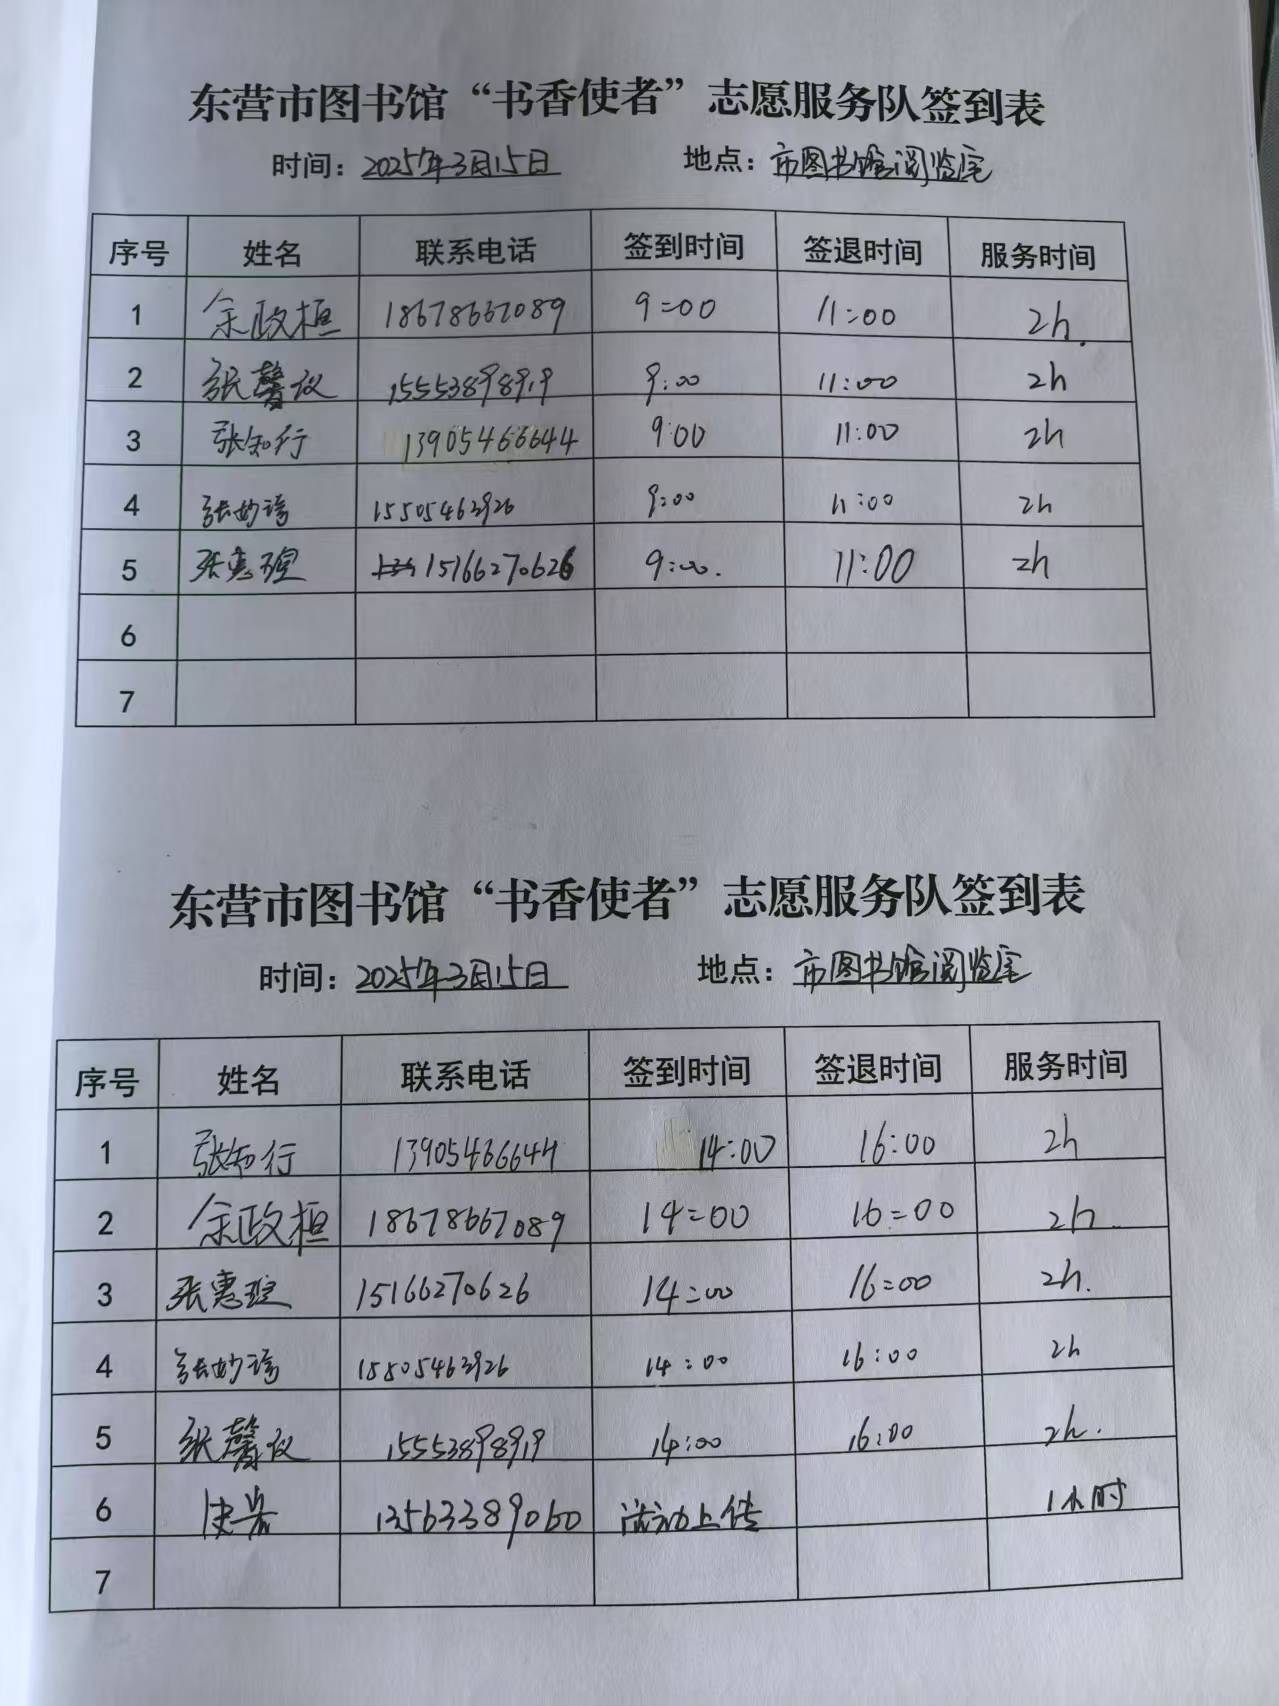 东营市图书馆“书香使者”志愿服务队签到表
时间：2025年3月15日 地点：市图书馆阅览室
序号 姓名 联系电话 签到时间 签退时间 服务时间
1 余政桓 18678667089 9:00 11:00 2h.
2 张馨议 15553898919 9:00 11:00 2h
3 张知行 13905466644 9:00 11:00 2h
4 张妙 15505463926 9:00 11:00 2h
5 张惠瑄 15166270626 9:00. 11:00 2h
6
7
东营市图书馆“书香使者”志愿服务队签到表
时间：2025年3月15日 地点：市图书馆阅览室
序号 姓名 联系电话 签到时间 签退时间 服务时间
1 张知行 13905466644 14:00 16:00 2h
2 余政桓 18678667089 14:00 16:00 2h.
3 张惠瑄 15166270626 14:00 16:00 2h.
4 张妙 15505463926 14:00 16:00 2h
5 张馨议 15553898919 14:00 16:00 2h.
6 13563389060 活动上传 1小时
7